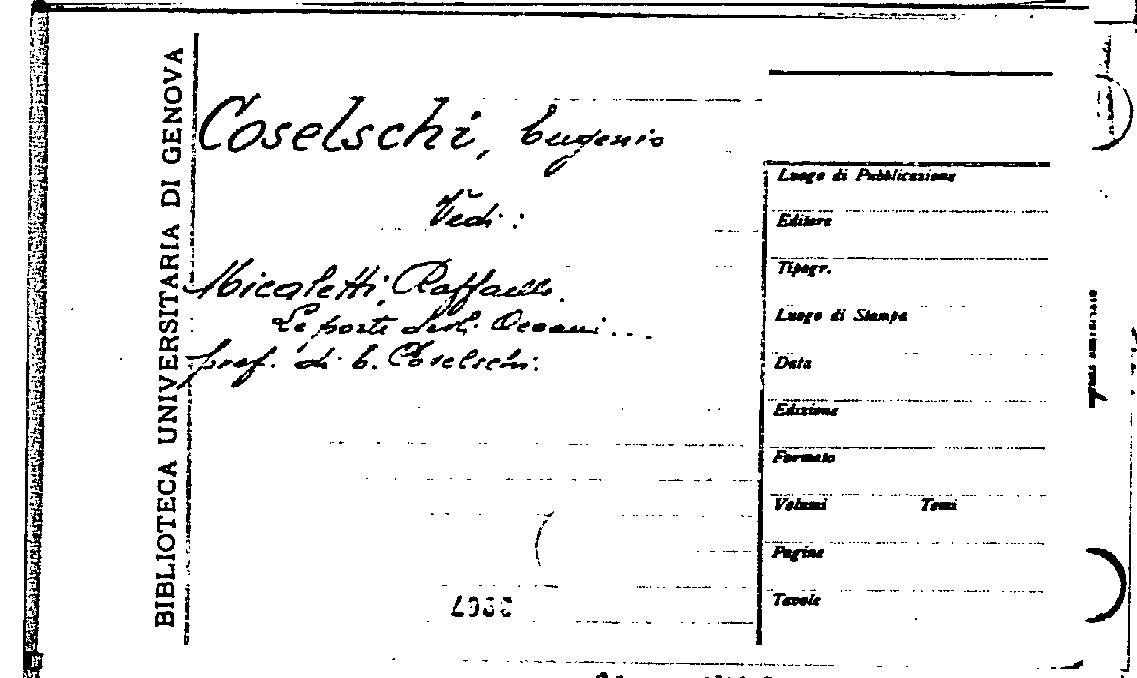 BIBLIOTECA UNIVERSITARIA DI GENOVA
Coselschi, Eugenio
Vedi:
Micaletti, Raffaello.
Le porte degli Oceani...
pref. di E. Coselschi.
Luogo di Pubblicazione
Editore
Tipogr.
Luogo di Stampa
Data
Edizione
Formato
Volumi Tomi
Pagine
Tavole